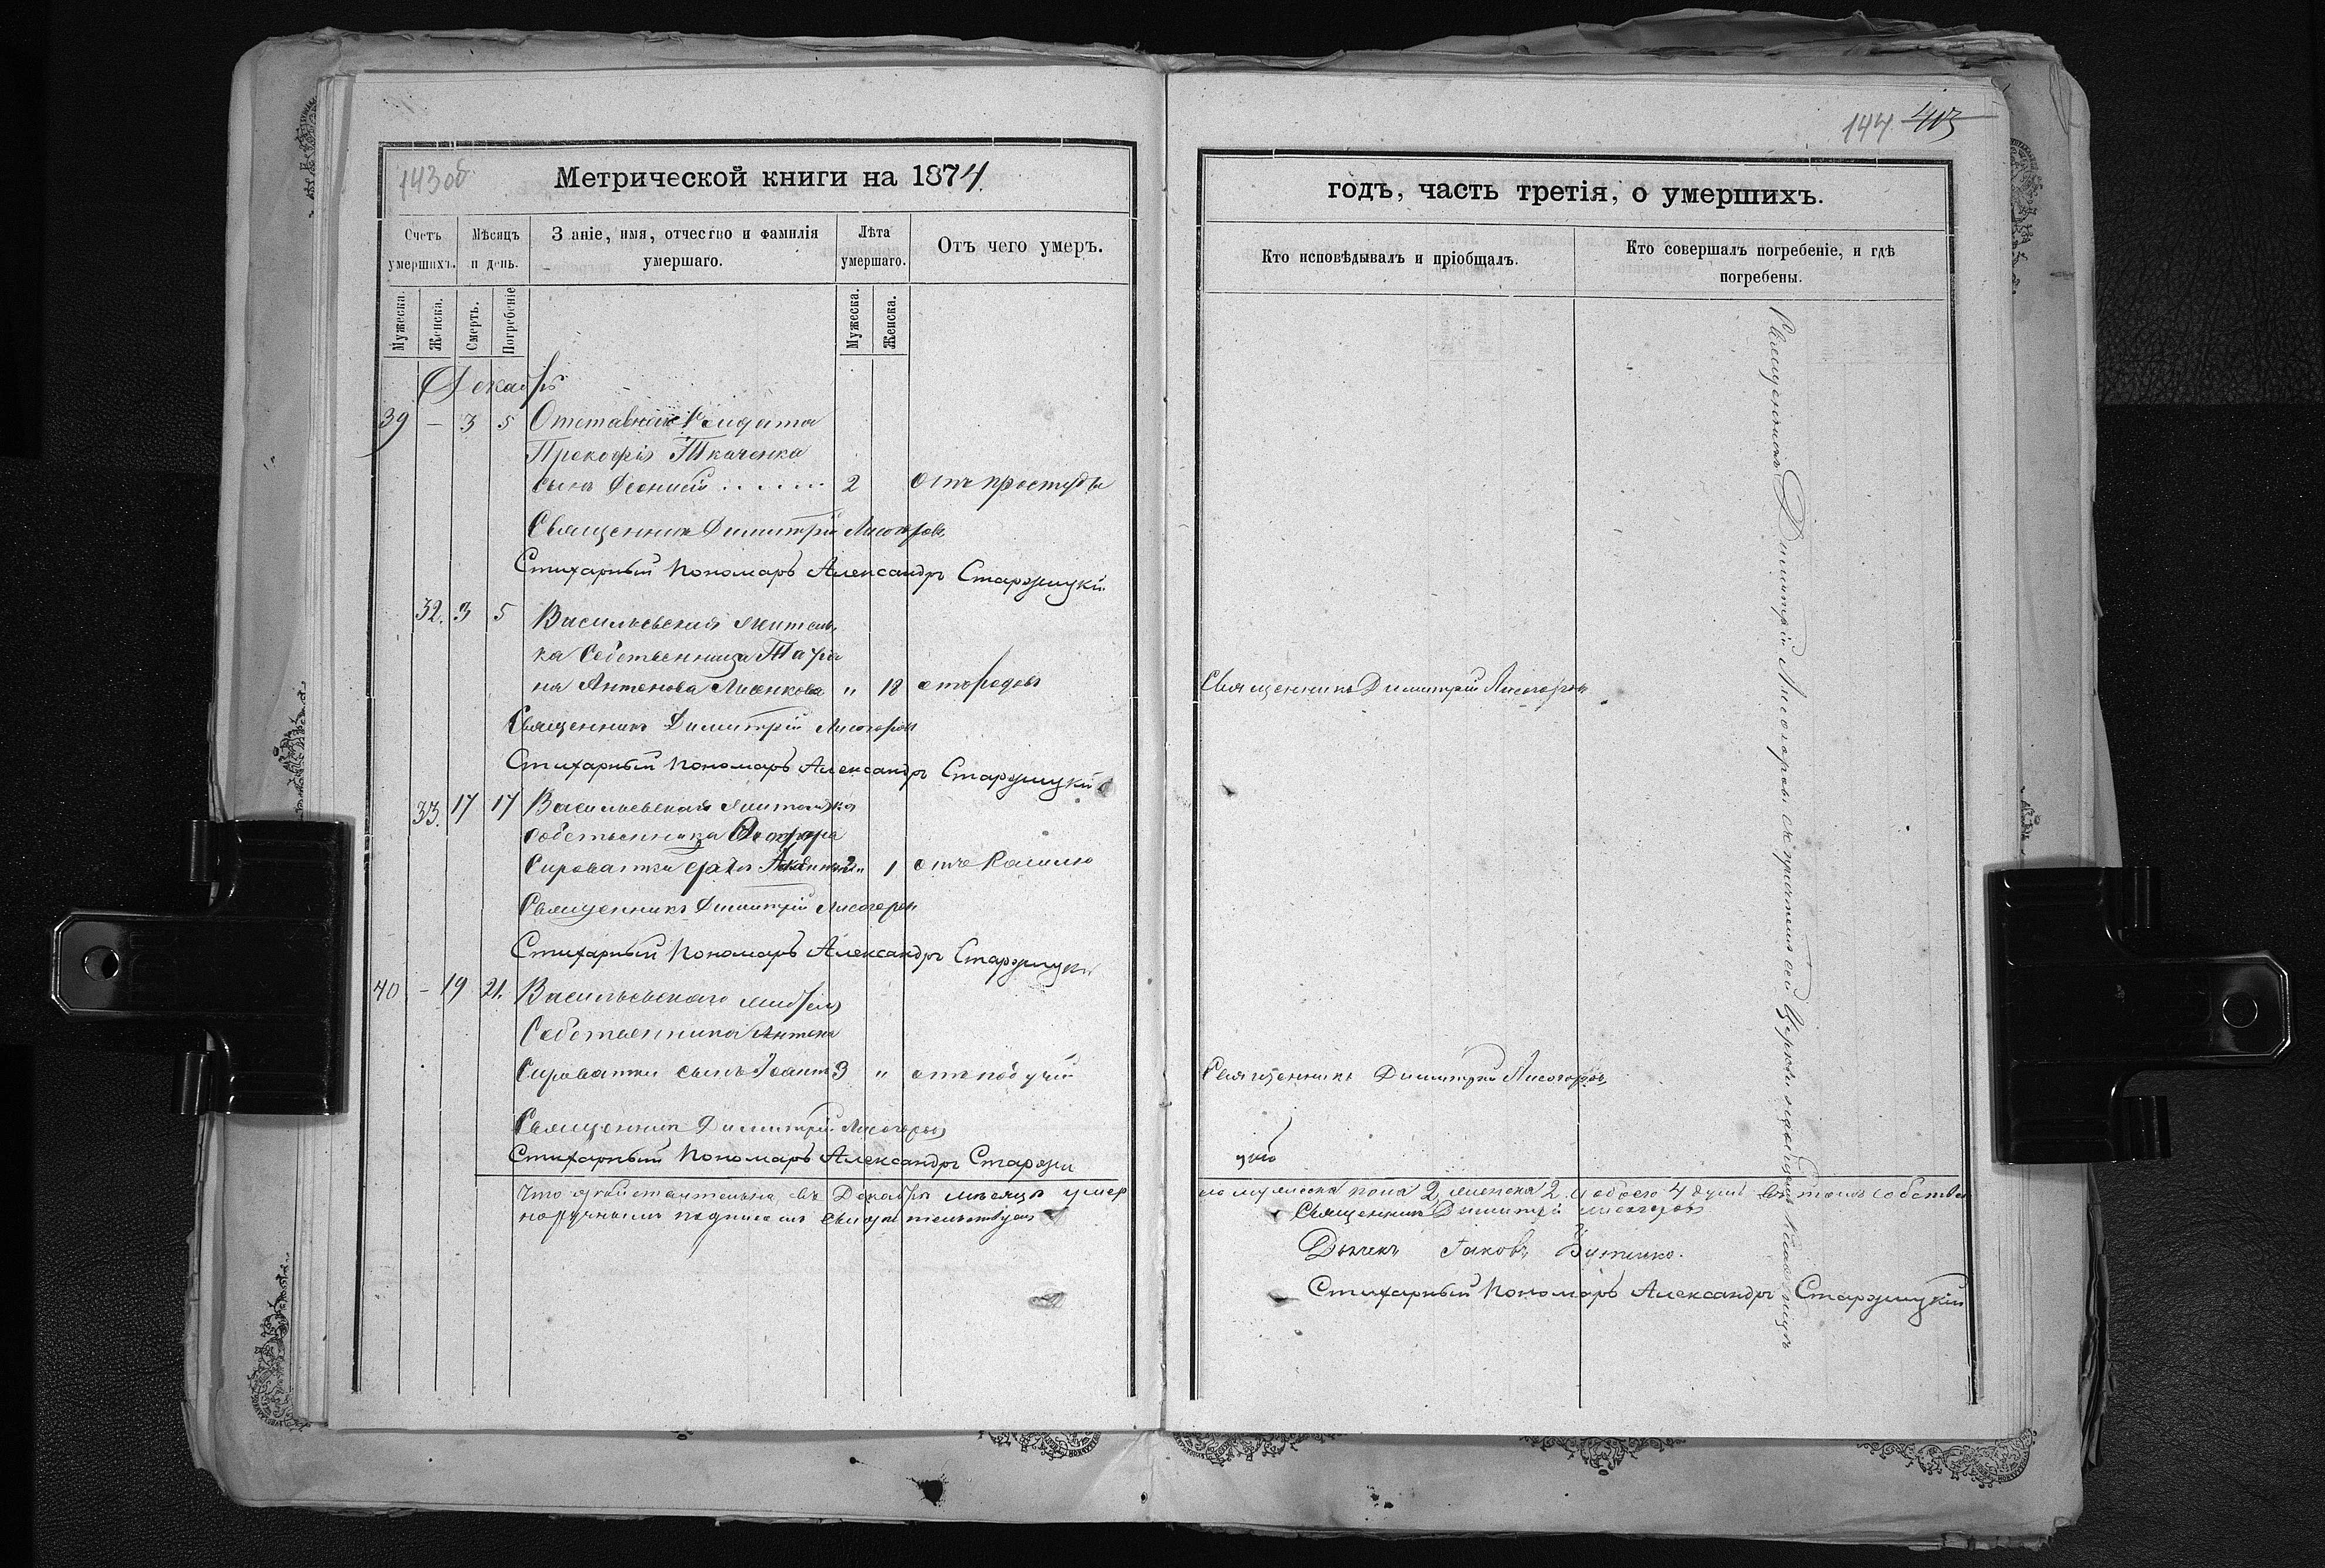 143об
Метрической книги на 1874
Счетъ умершихъ.
Мѣсяцъ и день.
З аніе, имя, отчество и фамилія умершаго.
Лѣта умершаго.
Отъ чего умеръ.
Мужеска.
Женска.
Смерть.
Погребеніе
Мужеска.
Женска.
Декабрь
39 — 3 5 Отставнаго Солдата
Прокофія Ткаченка
сынъ 2 отъ простуды
Священникъ Димитрій Лисогоровъ
Стихарный Пономарь Александръ Старжицкій
32. 3 5 Васильевская житель
ка Собственница Татья
на Антонова Лисенкова „ 18 отъ родовъ
Священникъ Димитрій Лисогоровъ
Стихарный Пономарь Александръ Старжицкій
33. 17 17 Васильевскаго жителя
собственника
Сироватки дочь „ 1 отъ кашлю
Священникъ Димитрій Лисогоровъ
Стихарный Пономарь Александръ Старжицкій
40 — 19 21. Васильевскаго жителя
Собственника Антона
Сироватки сынъ Іоаннъ 9 „ отъ
Священникъ Димитрій Лисогоровъ
Стихарный Пономарь Александръ Старжи
Что дѣйствительно въ Декабрѣ мѣсяцѣ умер
норучнымъ подписомъ свидѣтельствуемъ
144 413
годъ, часть третія, о умершихъ.
Кто исповѣдывалъ и пріобщалъ.
Кто совершалъ погребеніе, и гдѣ погребены.
Священникъ Димитрій Лисогоровъ съ причтомъ сей Церкви
Священникъ Димитрій Лисогоровъ
Священникъ Димитрій Лисогоровъ
ло мужеска пола 2, женска 2. а обоего 4 душъ въ томъ собстве
Священникъ Димитрій Лисогоровъ
Дьячекъ Іаковъ
Стихарный Пономарь Александръ Старжицкій